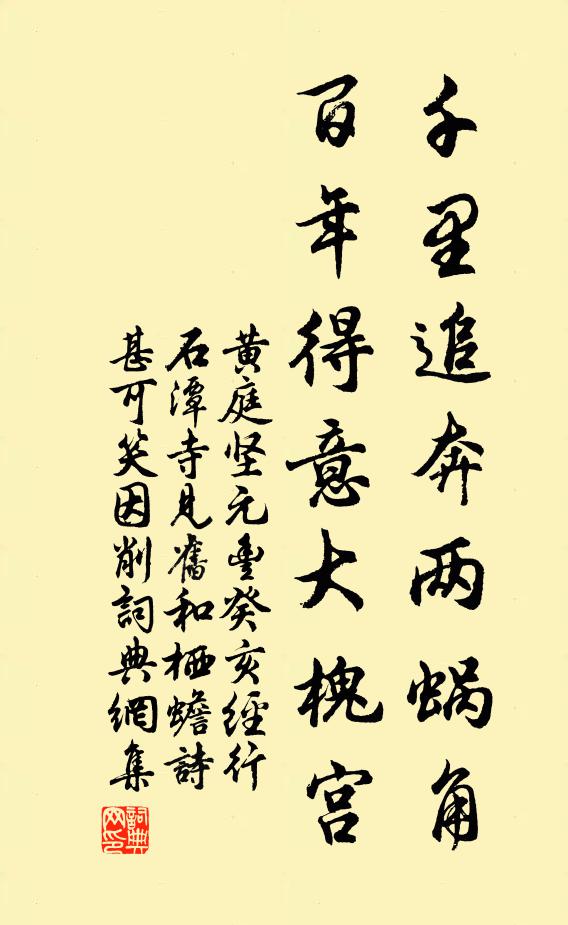 千里追奔两蜗角
百年得意大槐宫
黄庭坚元豊癸亥经行
石潭寺见舊和栖蟾詩
甚可笑因削詞典網集
詞典网印